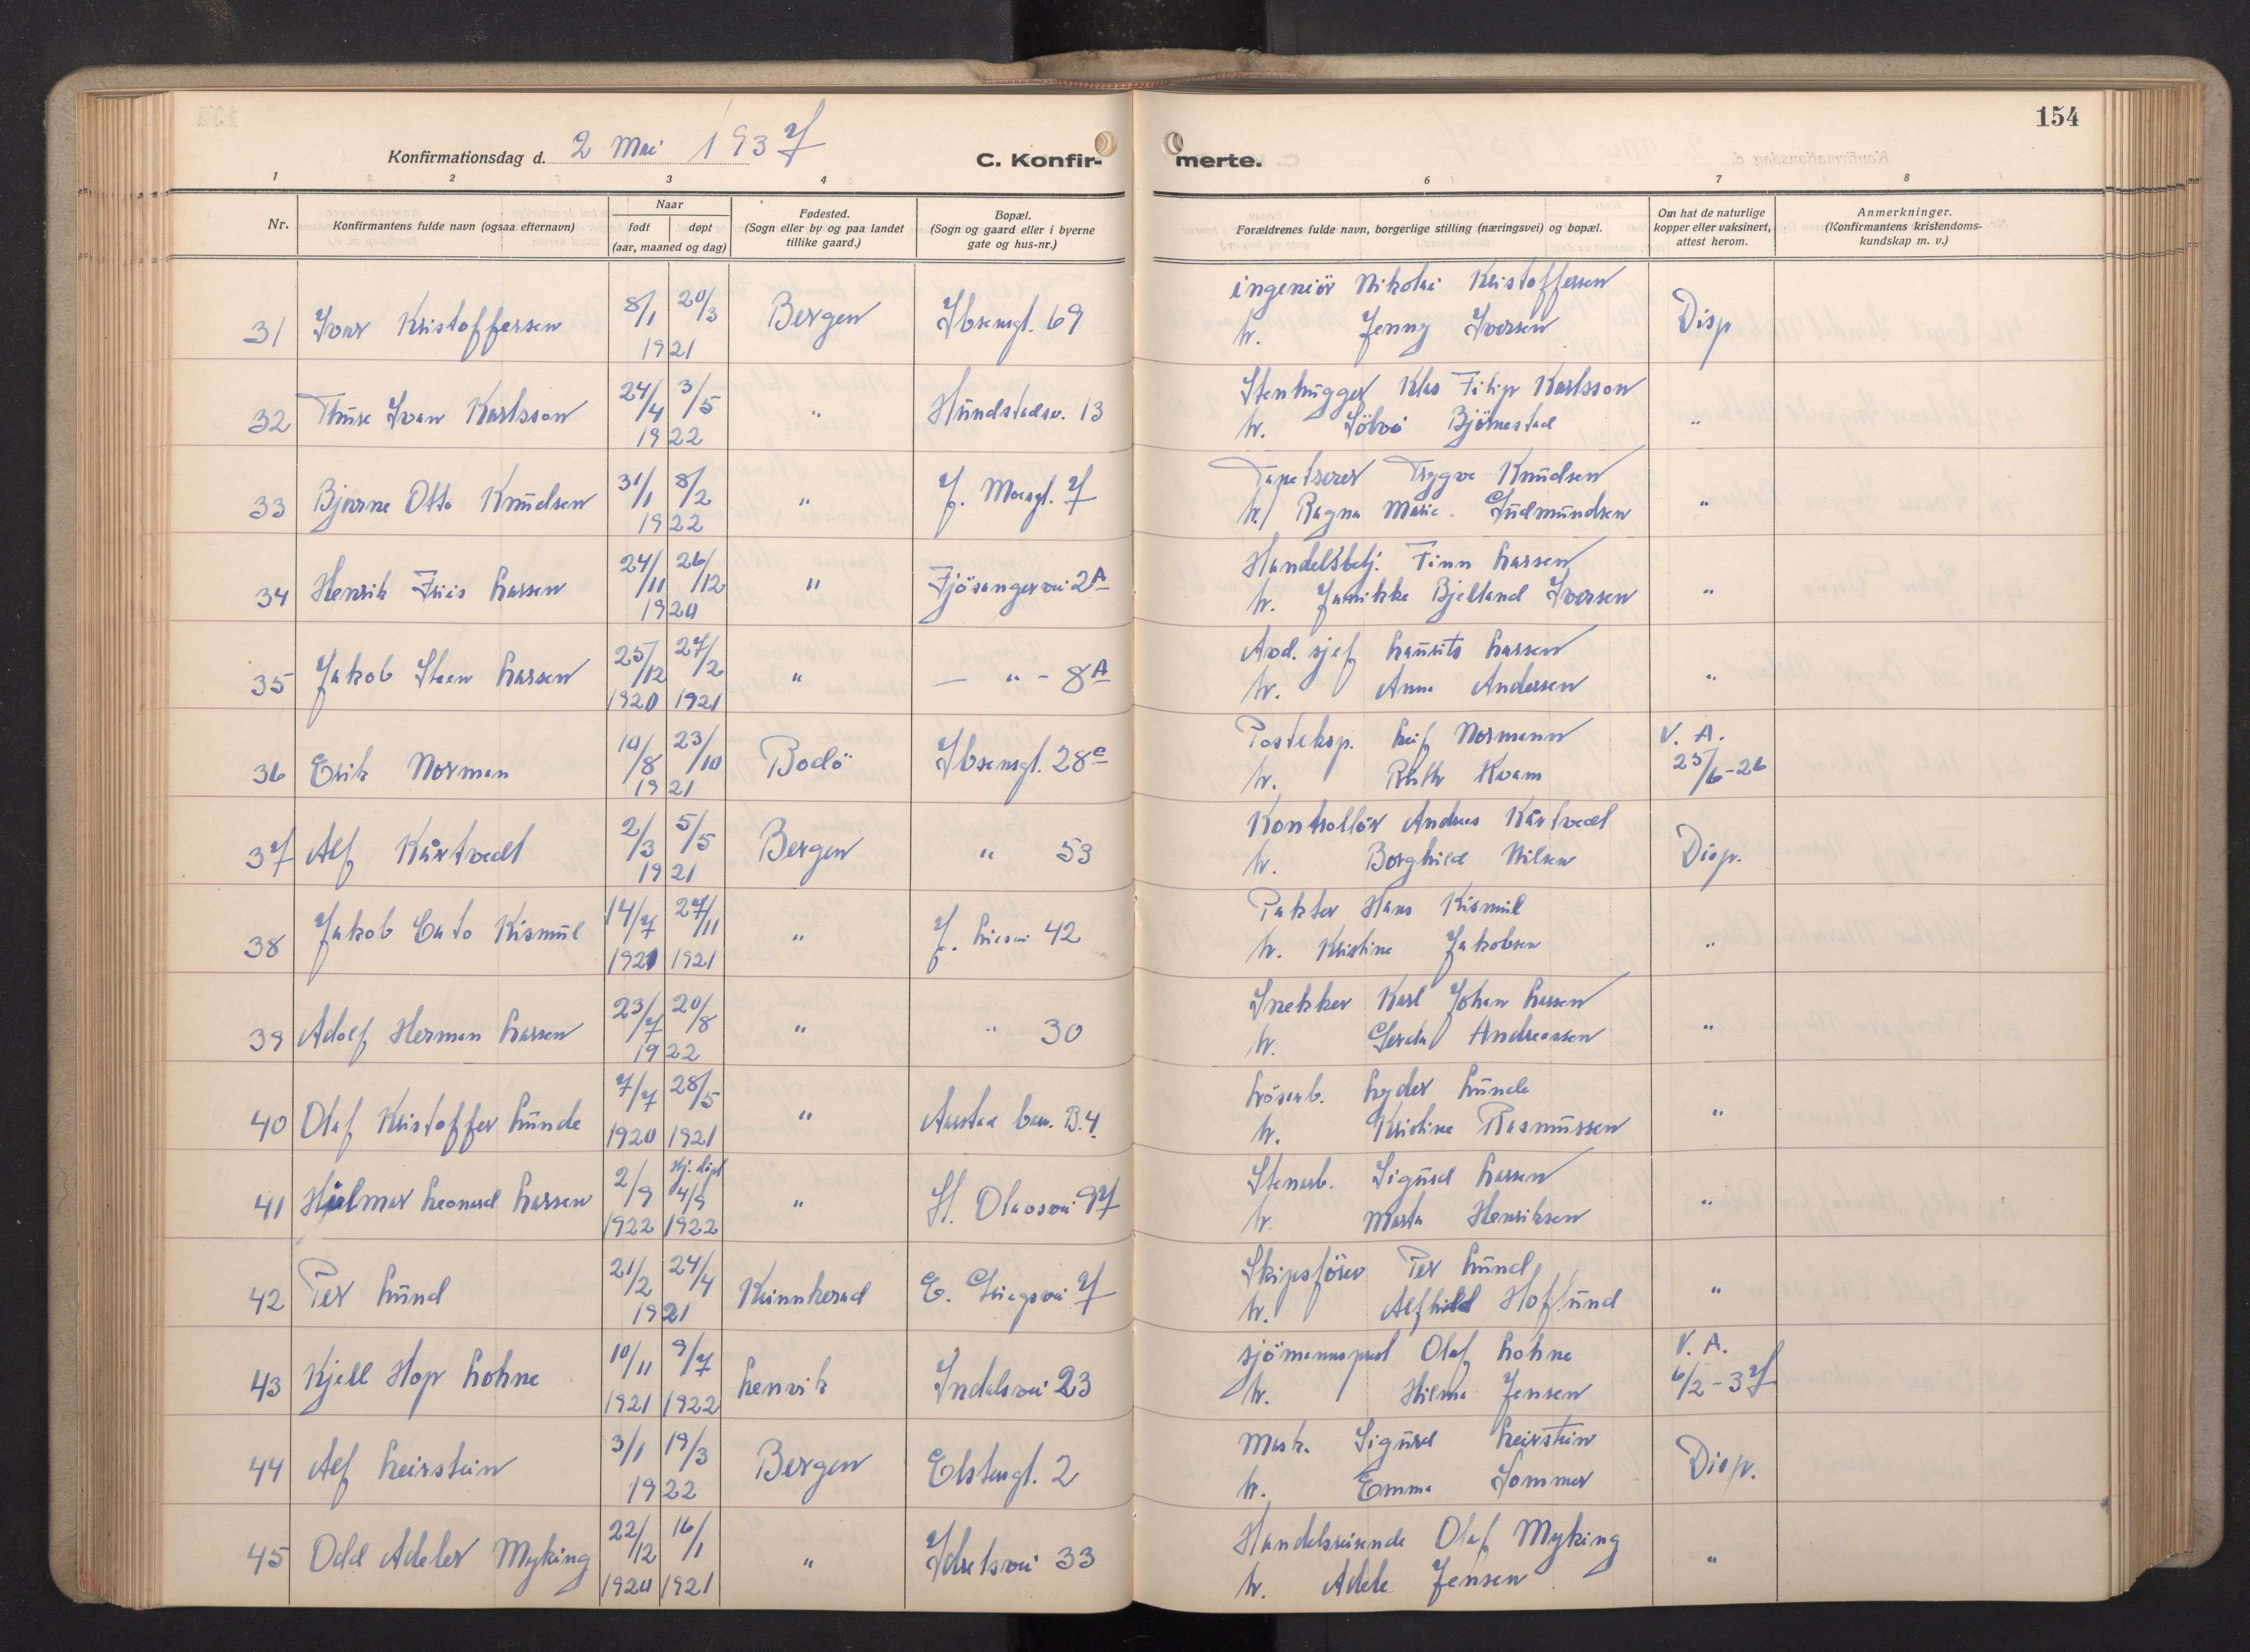 154
Konfirmationsdag d. 2 Mai 1937
C. Konfirmerte.
1 2 3 4 6 7 8
Nr.
Konfirmantens fulde navn (ogsaa efternavn)
Naar
født døpt
(aar, maaned og dag)
Fødested.
(Sogn eller by og paa landet
tillike gaard.)
Bopæl.
(Sogn og gaard eller i byerne
gate og hus-nr.)
Forældrenes fulde navn, borgerlige stilling (næringsvei) og bopæl.
Om hat de naturlige
kopper eller vaksinert,
attest herom.
Anmerkninger.
(Konfirmantens kristendoms-
kundskap m. v.)
31 Ivar Kristoffersen 8/1 20/3 1921 Bergen Ibsensgt. 69
ingeniör Nikolai Kristoffersen
h. Jenny Iversen Disp
32 Thure Ivan Karlsson 24/4 3/5 1922 " Hundstadsv. 13
Stenhugger Klas Filip Karlsson
h. Sölvi Björnestad "
33 Bjarne Otto Knudsen 31/1 8/2 1922 " J. Moesgt. 7
Tapetserer Trygve Knudsen
h. Ragna Marie Gudmundsen "
34 Henrik Friis Larsen 24/11 26/12 1920 " Fjösangervei 2A
Handelsbetj. Finn Larsen
h. Janikke Bjelland Iversen "
35 Jakob Steen Larsen 25/12 1920 27/2 1921 " — " - 8A
Avd. sjef Laurits Larsen
h. Anna Andersen "
36 Erik Norman 10/8 23/10 1921 Bodö Ibsensgt. 28c
Posteksp. Leif Normann
h. Ruth Kvam V. A. 25/6-26
37 Alf Kårtvedt 2/3 5/5 1921 Bergen " 59
Kontrollör Andreas Kårtvedt
h. Borghild Nilsen Disp.
38 Jakob Cato Kismul 14/7 1921 27/11 1921 " J. Liesvei 42
Pakker Hans Kismul
h. Kristine Jakobsen "
39 Adolf Herman Larsen 23/7 20/8 1922 " " 30
Snekker Karl Johan Larsen
h. Gerda Andreassen "
40 Olaf Kristoffer Lunde 7/7 1920 28/5 1921 " Aarstad bar. B.4
Lösarb. Lyder Lunde
h. Kristine Rasmussen "
41 Hjalmar Leonard Larsen 2/9 1922 hj. döpt 4/9 1922 " St. Olavsvei 97
Stenarb. Sigurd Larsen
h. Marta Henriksen "
42 Per Lund 21/2 24/4 1921 Kvinnherad E. Griegsvei 7
Skipsförer Per Lund
h. Alfhild Hoflund "
43 Kjell Hop Lohne 10/11 1921 9/7 1922 Lenvik Indalsvei 23
sjömannsprest Olaf Lohne
h. Hilma Jensen V. A. 6/2-37
44 Alf Leirstein 3/1 19/3 1922 Bergen Elstersgt. 2
Mask. Sigurd Leirstein
h. Emma Sommer Disp.
45 Odd Adeler Myking 22/12 1920 16/1 1921 " Idretsvei 33
Handelsreisende Olaf Myking
h. Adele Jensen "